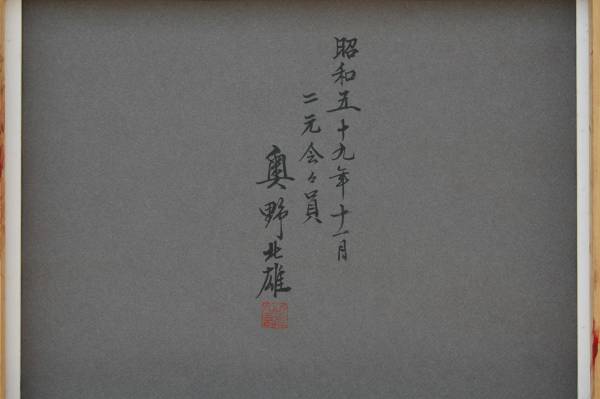 昭和五十九年十一月
二元会々員
奥野北雄